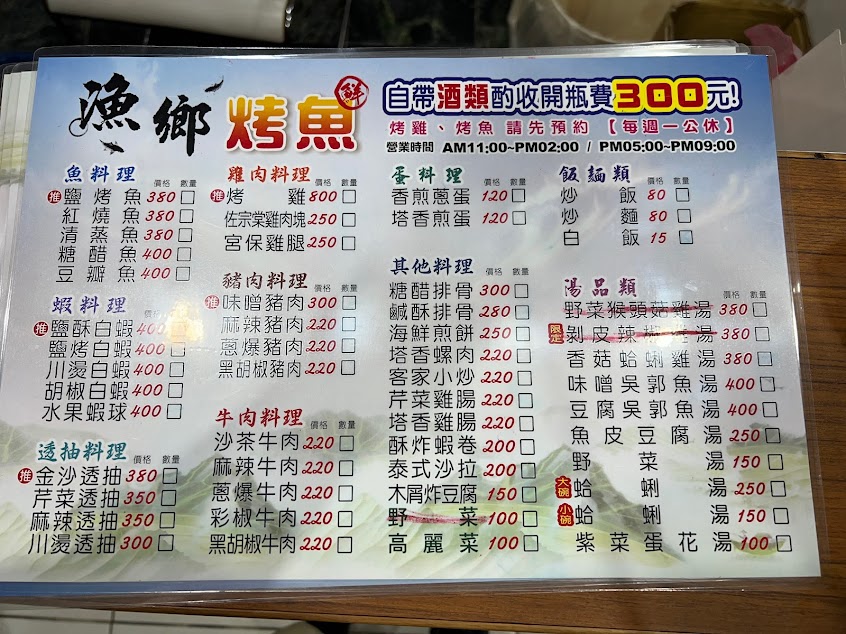 漁鄉 烤魚 鮮
自帶酒類酌收開瓶費300元!
烤雞、烤魚 請先預約 【每週一公休】
營業時間 AM11:00~PM02:00 / PM05:00~PM09:00
魚料理 價格 數量
推 鹽烤魚 380
紅燒魚 380
清蒸魚 380
糖醋魚 400
豆瓣魚 400
蝦料理 價格 數量
推 鹽酥白蝦 400
鹽烤白蝦 400
川燙白蝦 400
胡椒白蝦 400
水果蝦球 400
透抽料理 價格 數量
推 金沙透抽 380
芹菜透抽 350
麻辣透抽 350
川燙透抽 300
雞肉料理 價格 數量
推 烤雞 800
佐宗棠雞肉塊 250
宮保雞腿 250
豬肉料理 價格 數量
推 味噌豬肉 300
麻辣豬肉 220
蔥爆豬肉 220
黑胡椒豬肉 220
牛肉料理 價格 數量
沙茶牛肉 220
麻辣牛肉 220
蔥爆牛肉 220
彩椒牛肉 220
黑胡椒牛肉 220
蛋料理 價格 數量
香煎蔥蛋 120
塔香煎蛋 120
其他料理 價格 數量
糖醋排骨 300
鹹酥排骨 280
海鮮煎餅 250
塔香螺肉 220
客家小炒 220
芹菜雞腸 220
塔香雞腸 220
酥炸蝦卷 200
泰式沙拉 200
木屑炸豆腐 150
野菜 100
高麗菜 100
飯麵類 價格 數量
炒飯 80
炒麵 80
白飯 15
湯品類 價格 數量
野菜猴頭菇雞湯 380
限定 剝皮辣椒雞湯 380
香菇蛤蜊雞湯 380
味噌吳郭魚湯 400
豆腐吳郭魚湯 400
魚皮豆腐湯 250
野菜湯 150
大碗 蛤蜊湯 250
小碗 蛤蜊湯 150
紫菜蛋花湯 100